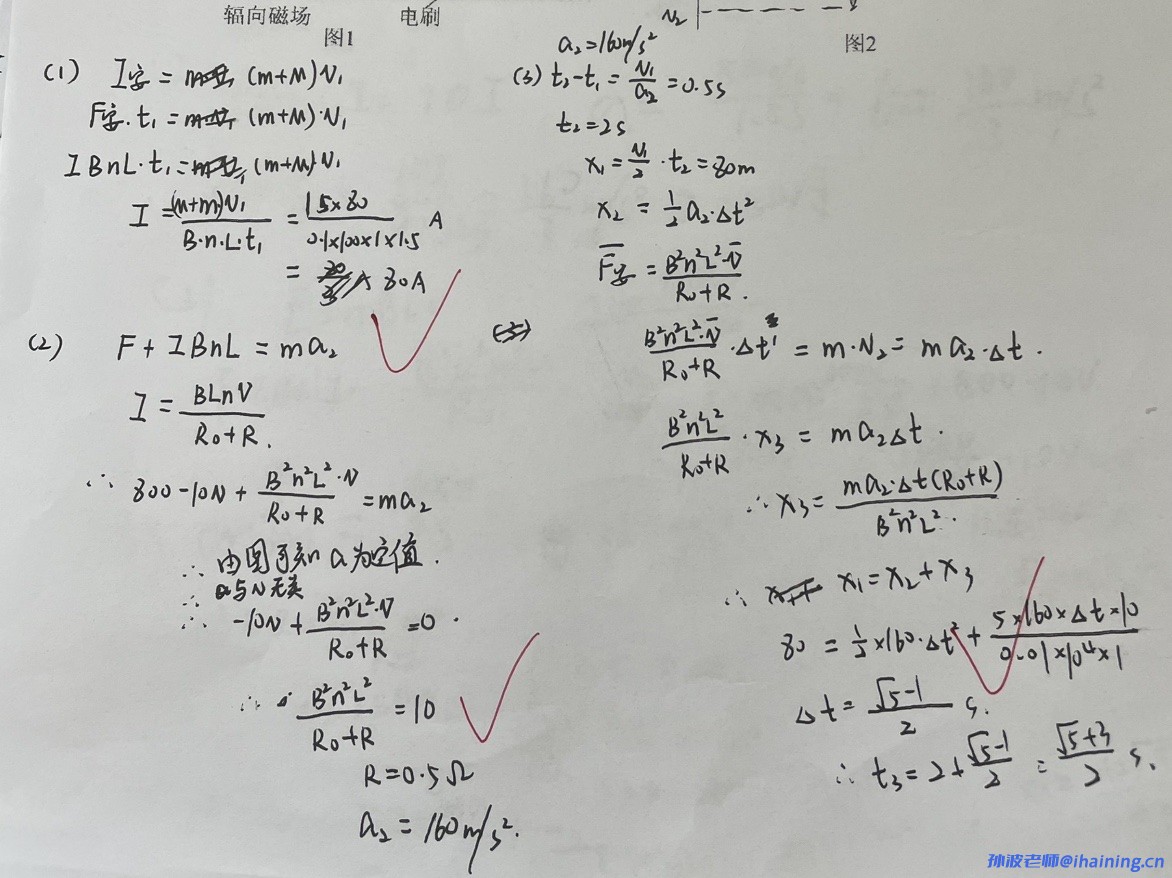 辐向磁场
电刷
图1
v₂
图2
(1) I安 = (m+M)v₁
F安·t₁ = (m+M)·v₁
IBnL·t₁ = (m+M)v₁
I = \frac{(M+m)v₁}{B·n·L·t₁} = \frac{15×80}{0.1×100×1×1.5} A
= 80A
(2) F + IBnL = ma₂
I = \frac{BLnv}{R₀+R}.
∴ 800-10v + \frac{B²n²L²·v}{R₀+R} = ma₂
∴ 由图可知 a为定值.
∴ a与v无关
∴ -10v + \frac{B²n²L²·v}{R₀+R} = 0.
∴ \frac{B²n²L²}{R₀+R} = 10
R = 0.5Ω
a₂ = 160m/s².
a₂ = 160m/s²
(3) t₂-t₁ = \frac{v₁}{a₂} = 0.5s
t₂ = 2s
x₁ = \frac{v₁}{2}·t₂ = 80m
x₂ = \frac{1}{2}a₂·Δt²
\overline{F安} = \frac{B²n²L²·\overline{v}}{R₀+R}.
\frac{B²n²L²·\overline{v}}{R₀+R}·Δt' = m·v₂ = ma₂·Δt.
\frac{B²n²L²}{R₀+R}·x₃ = ma₂Δt.
∴ x₃ = \frac{ma₂·Δt(R₀+R)}{B²n²L²}.
∴ x₁ = x₂ + x₃
80 = \frac{1}{2}×160·Δt² + \frac{5×160×Δt×10}{0.01×10⁴×1}
Δt = \frac{√5-1}{2} s.
∴ t₃ = 2+\frac{√5-1}{2} = \frac{√5+3}{2} s.
孙波老师@ihaining.cn